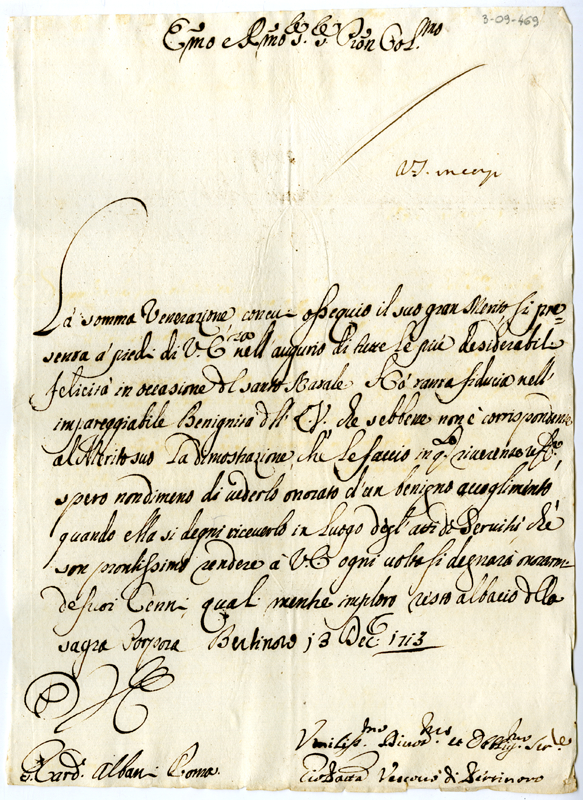 3-09-469
Emo e Rmo Sig.r Sig.r Pron Col.mo
La somma Venerazione con cui ossequio il suo gran Merito si pre=
senta a' piedi di V. E. nell'augurio di tutte le più desiderabili
felicità in occasione del santo Natale. Hò tanta fiducia nell'
impareggiabile Benignità dell' E.V. che sebbene non è corrispondente
al Merito suo la dimostrazione, ch'Le faccio in q.sto riverente uff.o,
spero nondimeno di vederlo onorato d'un benigno accoglimento
quando ella si degni riceverlo in luogo degl'atti di Servitù che
son prontissimo rendere à V.E. ogni volta si degnarà onorarmi
de suoi Cenni, quali mentre imploro resto al bacio della
sagra Porpora Bertinoro 13 Dec. 1713
Umiliss.mo Divot.mo et Obblig.mo Ser.e
S. Card. Albani Roma.
Vescovo di Bertinoro